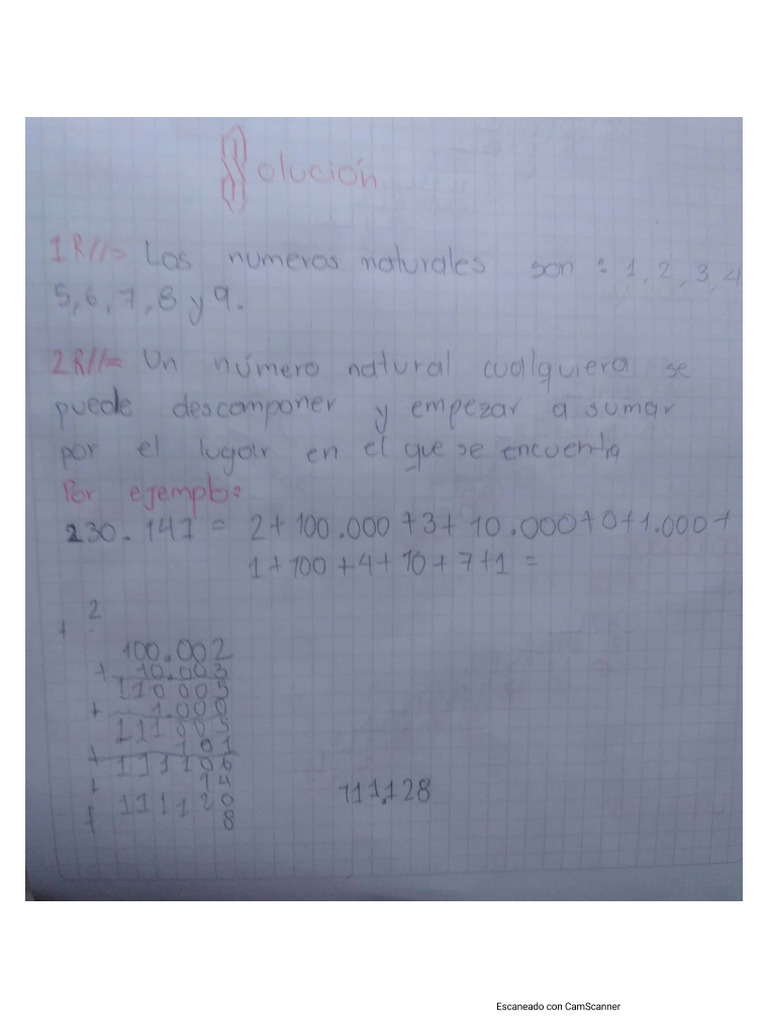 Solución
1R//= Los numeros naturales son : 1, 2, 3, 4
5, 6, 7, 8 y 9.
2R//= Un número natural cualquiera se
puede descomponer y empezar a sumar
por el lugar en el que se encuentra
Por ejemplo:
230.147 = 2+100.000+3+10.000+0+1.000+
1+100+4+10+7+1=
2
+
100.002
+ 10.003
110005
+ 1.000
111005
+ 101
111106
+ 14
111120
+ 8
111.128
Escaneado con CamScanner